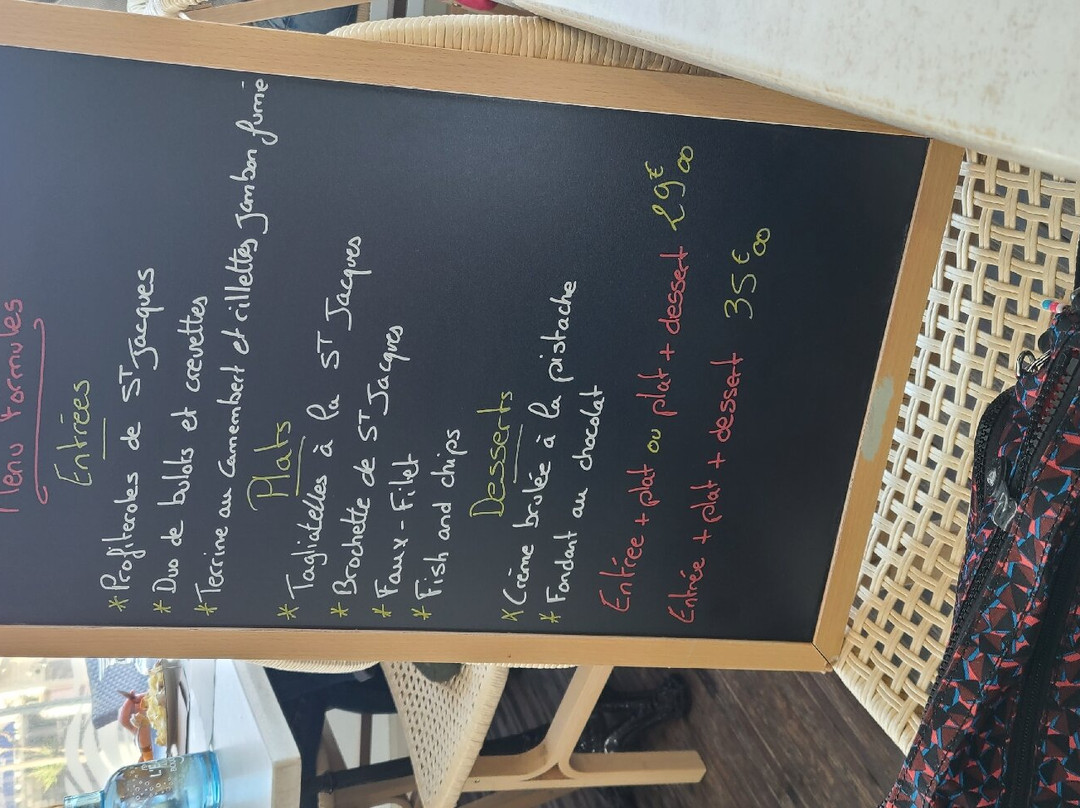 Menu formules
Entrées
* Profiteroles de ST Jacques
* Duo de bulots et crevettes
* Terrine au Camembert et rillettes Jambon fumé
Plats
* Tagliatelles à la ST Jacques
* Brochette de ST Jacques
* Faux-Filet
* Fish and chips
Desserts
* Crème brulée à la pistache
* Fondant au chocolat
Entrée + plat ou plat + dessert 29€00
Entrée + plat + dessert 35€00